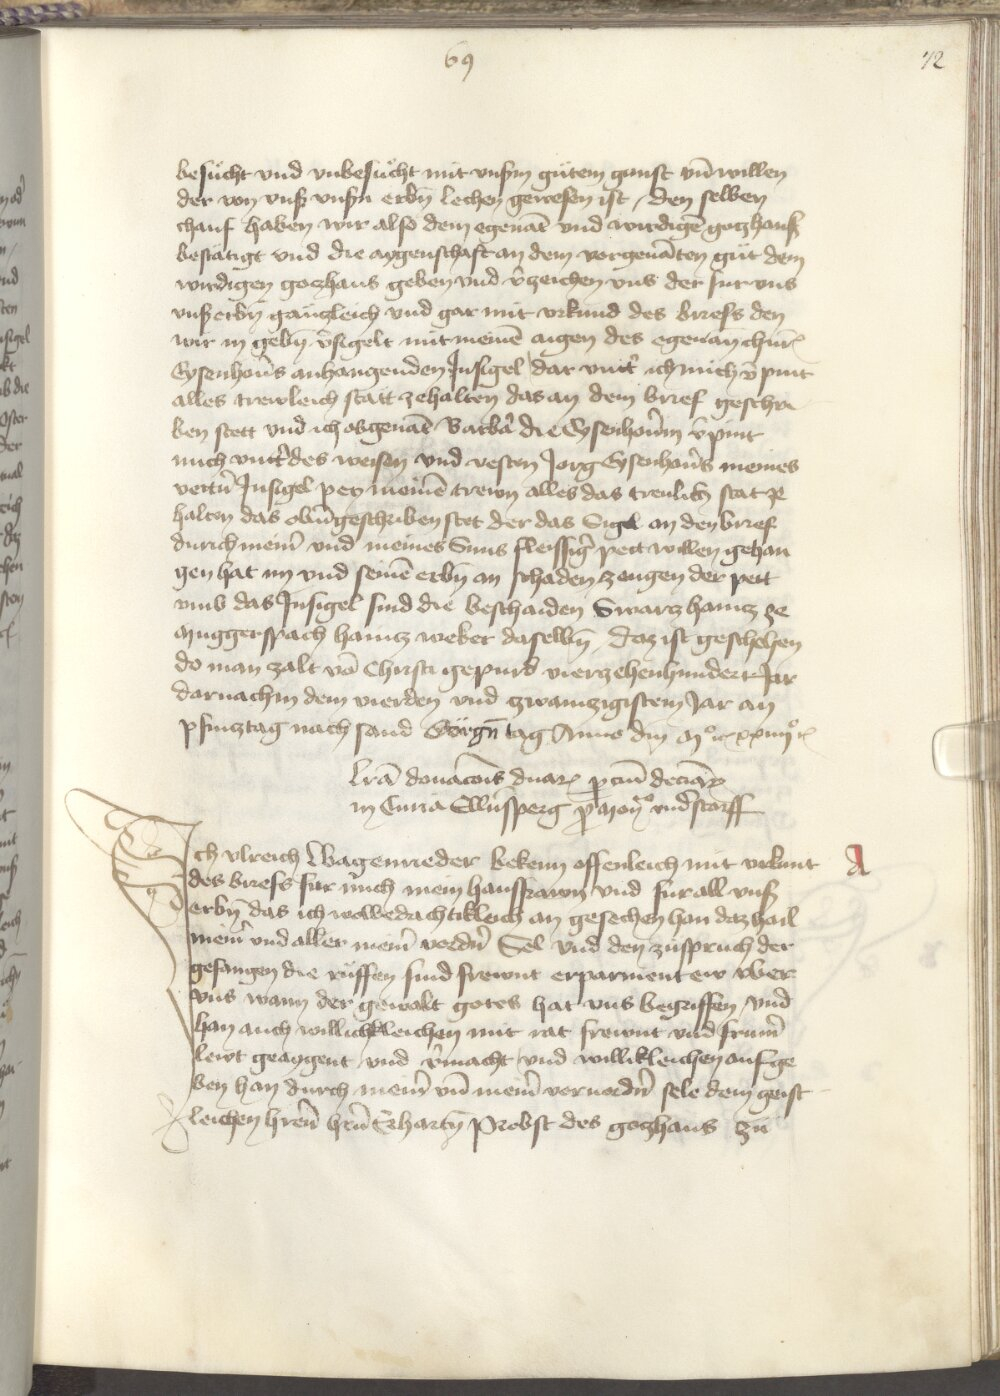 69
72
besücht vnd vnbesücht mit vnßm gütem gunst vn̄ willen
der von vnß vnßn erbn̄ lechen gewesen ist / den selben
chauf haben wir also dem egenāt vnd wirdigē gotzhauß
bestätigt vnd die aygenschaft an dem vorgenāten güt dem
wirdigen gotzhaus geben vnd v̄zeichen vns der für vns
vnß erbn̄ gäntzleich vnd gar mit vrkund des briefs den
wir in gebn̄ v̄sigelt mit meinē aigen des egenan̄
Eysenhouer̄s anhangenden Insigel dar vntter̄ ich mich v̄pint
alles trewleich statt zehalten das an dem brief geschri
ben stett vnd ich obgenāt Barbā die Eysenhouer̄in v̄pint
mich vntter̄ des weisen vnd vesten Jorg Eysenhouer̄s meines
vetter̄n Insigel pey meinē trewn alles das trewlich stat ze
halten das oben̄geschriben stet der das Sigel an den brief
durich meiner̄ vnd meines Suns fleissiger̄ pett willen gehan
gen hat im vnd seinē erbn̄ an schaden zeugen der pett
vmb das Insigel sind die beschaiden Swartz haintz ze
Muggerspach haintz weber daselbn̄ / daz ist geschehen
do man zalt vō Christi gepurd vierzehenhundert Jar
darnach in dem vierden vnd zwaintzigistem Jar an
pfintztag nach sand Görgn̄ tag Anno dn̄i Mº cccc xxiiijº
lrā donacōis duar
in Curia Ellnsperg vnderstorff
Ich vlreich Wagenrieder bekenn offenleich mit vrkunt
A
des briefs für mich mein hausfrawn vnd für all vnß
erbn̄ das ich wolbedachtikleich an gesechen han daz hail
meiner̄ vnd aller meiner̄ vordn̄ Sel vnd den züspruch der
gefangen die rüffen sind frewnt erparment ew vber
vns wann der gewalt gotes hat vns begriffen / vnd
han auch willichkleichen mit rat frewnt vnd frumer̄
lewt geaygent / vnd v̄macht / vnd willikleichen aufge
ben han durch meiner̄ vn̄ meiner̄ voruordn̄ sele dem geist
leichen hren̄ hrn̄ Erhartn̄ Probst des gotzhaus zü